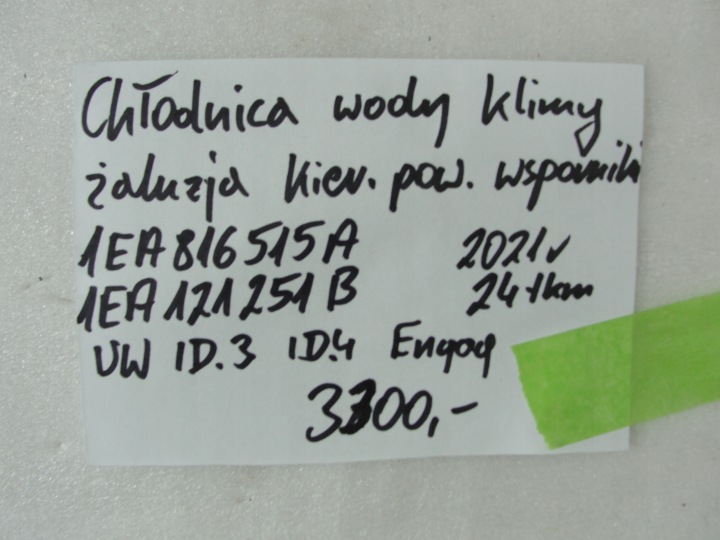 Chłodnica wody klimy
żaluzja kier. pow. wsporniki
1EA 816 515 A 2021r
1EA 121 251 B 24 tkm
VW ID.3 ID.4 Enyaq
3300,-